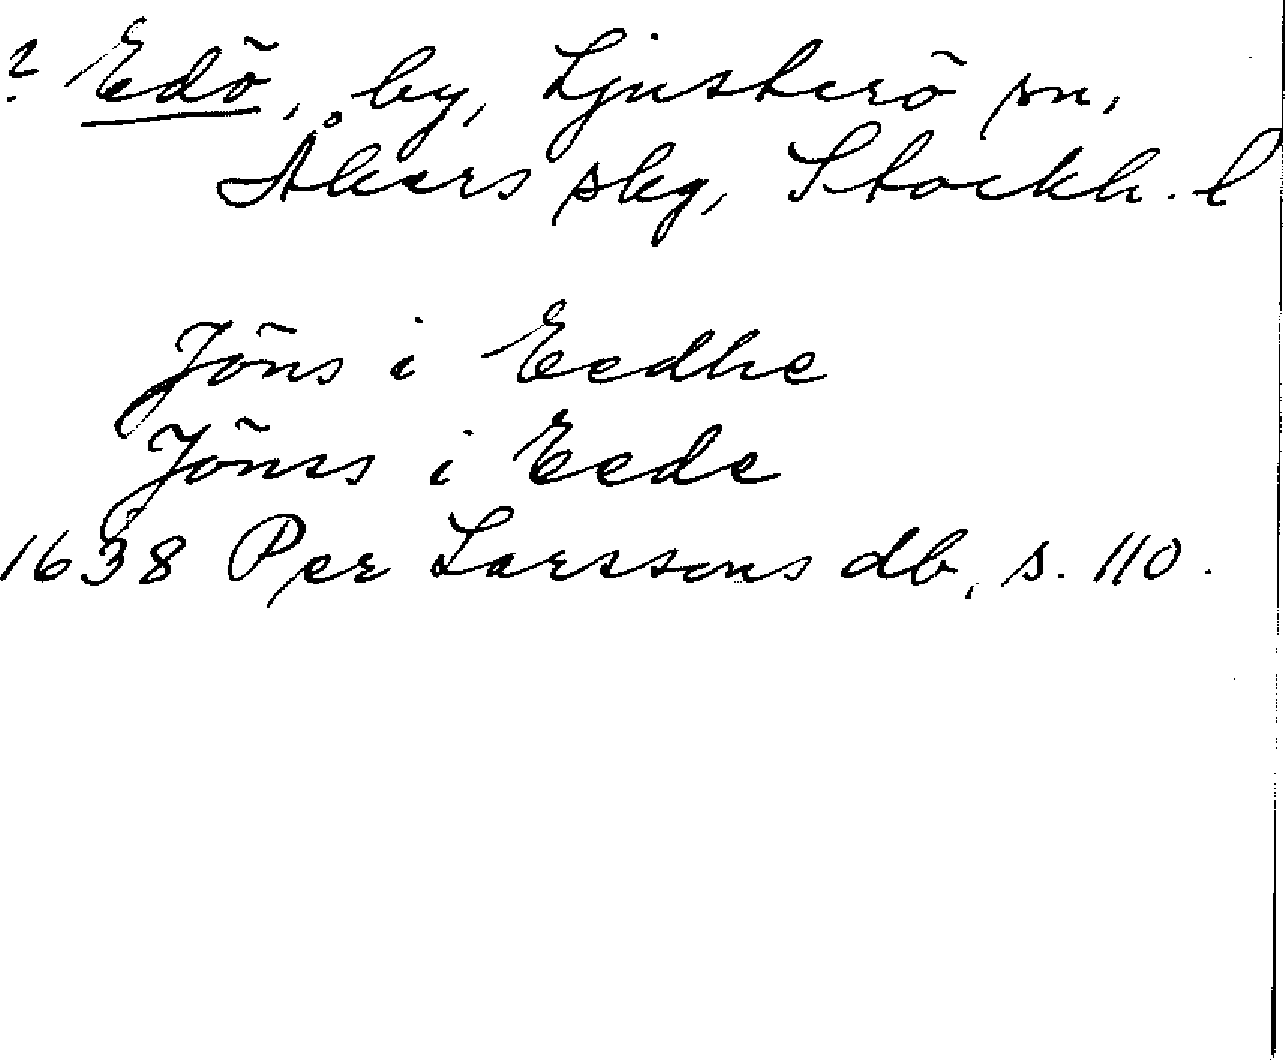 ? Edö, by, Ljusterö sn,
Åkers skg, Stockh. l
Jöns i Eedhe
Jönss i Eede
1638 Per Larssons db, s. 110.